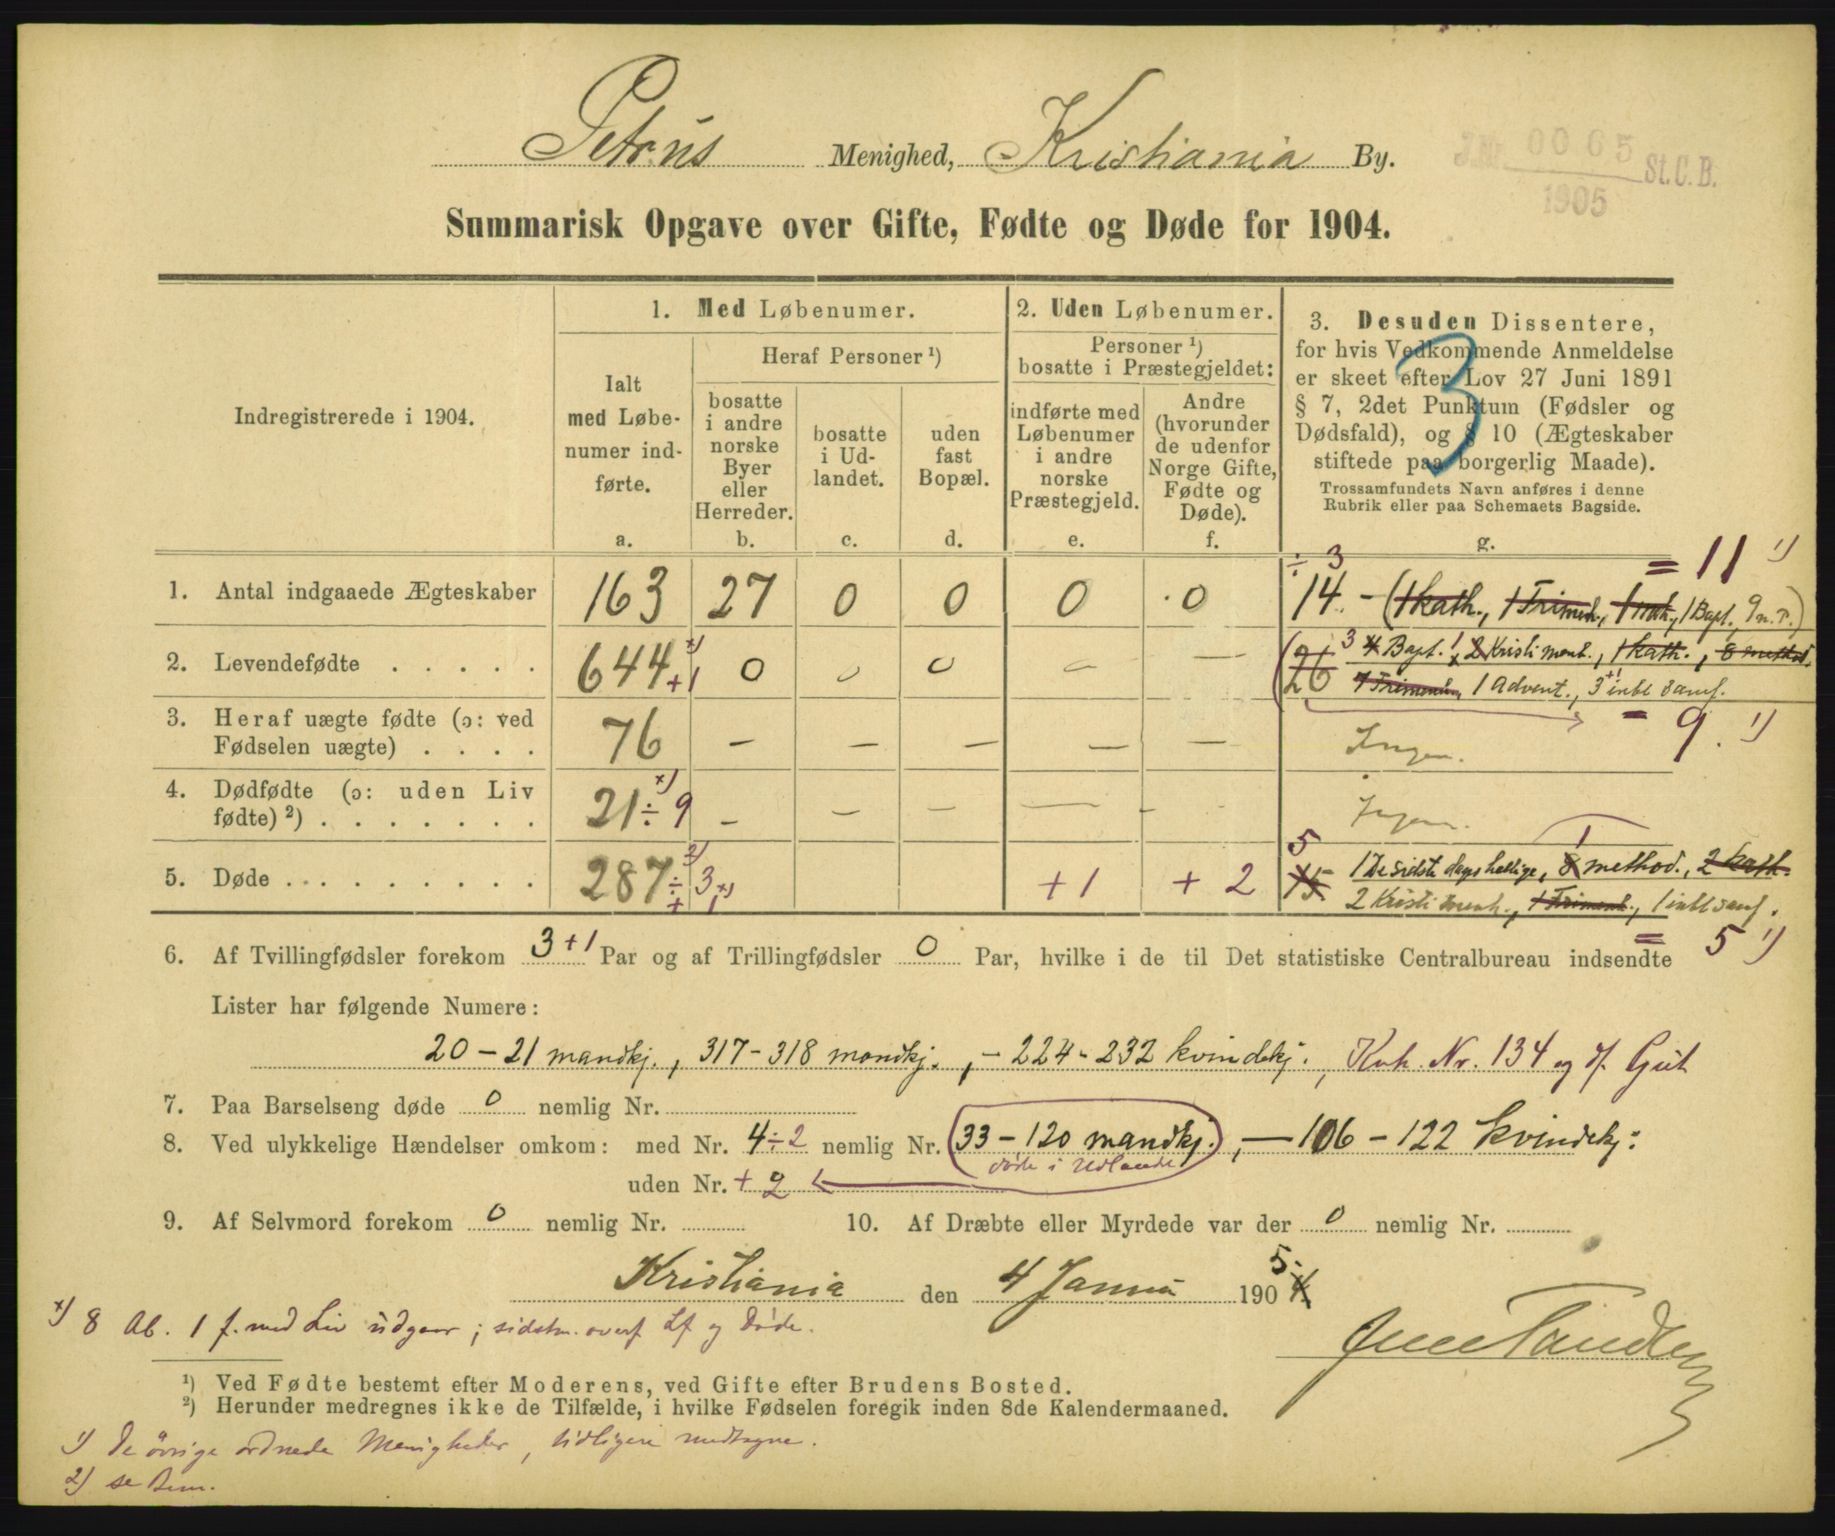 Petrus Menighed, Kristiania By.
J.Nr. 0065 St.C.B.
1905
Summarisk Opgave over Gifte, Fødte og Døde for 1904.
Indregistrerede i 1904.
1. Med Løbenumer.
Ialt med Løbe-
numer ind-
førte.
a.
Heraf Personer ¹)
bosatte
i andre
norske
Byer
eller
Herreder.
b.
bosatte
i Ud-
landet.
c.
uden
fast
Bopæl.
d.
2. Uden Løbenumer.
Personer ¹)
bosatte i Præstegjeldet:
indførte med
Løbenumer
i andre
norske
Præstegjeld.
e.
Andre
(hvorunder
de udenfor
Norge Gifte,
Fødte og
Døde).
f.
3. Desuden Dissentere,
for hvis Vedkommende Anmeldelse
er skeet efter Lov 27 Juni 1891
§ 7, 2det Punktum (Fødsler og
Dødsfald), og § 10 (Ægteskaber
stiftede paa borgerlig Maade).
Trossamfundets Navn anføres i denne
Rubrik eller paa Schemaets Bagside.
g.
3
÷ 3 = 11 ¹)
1. Antal indgaaede Ægteskaber 163 27 0 0 0 0 14 - (1 kath., 1 Frimen., 1 , 1 Bapt., 9 n. )
2. Levendefødte . . . . . 644 x) +1 0 0 0 - - 26 3 4 Bapt. 1 2 Kristi menh., 1 kath., 8 method.
7 Frimenh., 1 Advent., 3 +1 intl samf.
= 9. ¹)
3. Heraf uægte fødte (ɔ: ved
Fødselen uægte) . . . . 76 — — — — — Ingen.
4. Dødfødte (ɔ: uden Liv
fødte) ²) . . . . . . . 21 ÷ 9 x) — — — — - Ingen.
5. Døde . . . . . . . . . 287 ÷ 3 ²) + 1 x) + 1 + 2 5 15 1 De sidste dags hellige, 8 1 method., 2 kath.
2 Kristi menh., 1 Frimenh., 1 intl samf.
= 5 ¹)
6. Af Tvillingfødsler forekom 3 +1 Par og af Trillingfødsler 0 Par, hvilke i de til Det statistiske Centralbureau indsendte
Lister har følgende Numere:
20 - 21 mandkj., 317 - 318 mandkj., - 224 - 232 kvindekj., Kvk. Nr. 134 og df. Gut
7. Paa Barselseng døde 0 nemlig Nr.
8. Ved ulykkelige Hændelser omkom: med Nr. 4 ÷ 2 nemlig Nr. 33 - 120 mandkj., - 106 - 122 kvindekj:
døde i Udlandet
uden Nr. + 2
9. Af Selvmord forekom 0 nemlig Nr.
10. Af Dræbte eller Myrdede var der 0 nemlig Nr.
Kristiania den 4 Januar 1904 5
x) 8 Ab. 1 f. med Liv udgaar; sidstn. overf Lf og Døde.
¹) Ved Fødte bestemt efter Moderens, ved Gifte efter Brudens Bosted.
²) Herunder medregnes ikke de Tilfælde, i hvilke Fødselen foregik inden 8de Kalendermaaned.
1) De øvrige ordnede Menigheder, tidligere medtagne.
2) se Bem.